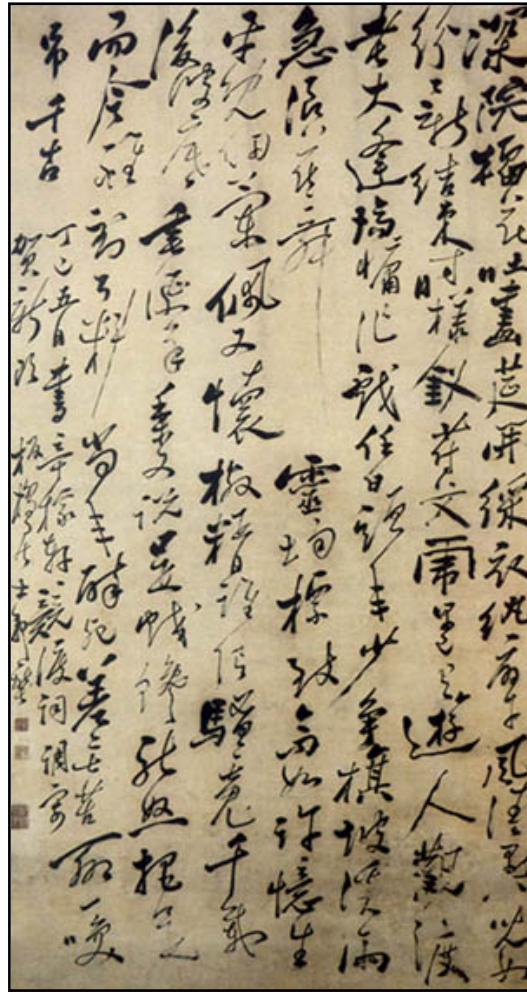 深院榴花吐畫簾開綵衣紈扇午風清暑兒女
紛紛新結束時樣釵符艾虎早已有遊人觀渡
老大逢場慵作戲任白頭年少爭旗鼓溪雨
急浪花舞 靈均標致高如許憶生
平既紉蘭佩又懷椒糈誰信騷魂千載
後波底垂涎角黍又說是蛟饞龍怒把似
而今醒到了料當年醉死差無苦聊一笑
弔千古
丁巳五月書辛稼軒競渡詞調寄
賀新郎 板橋居士鄭燮